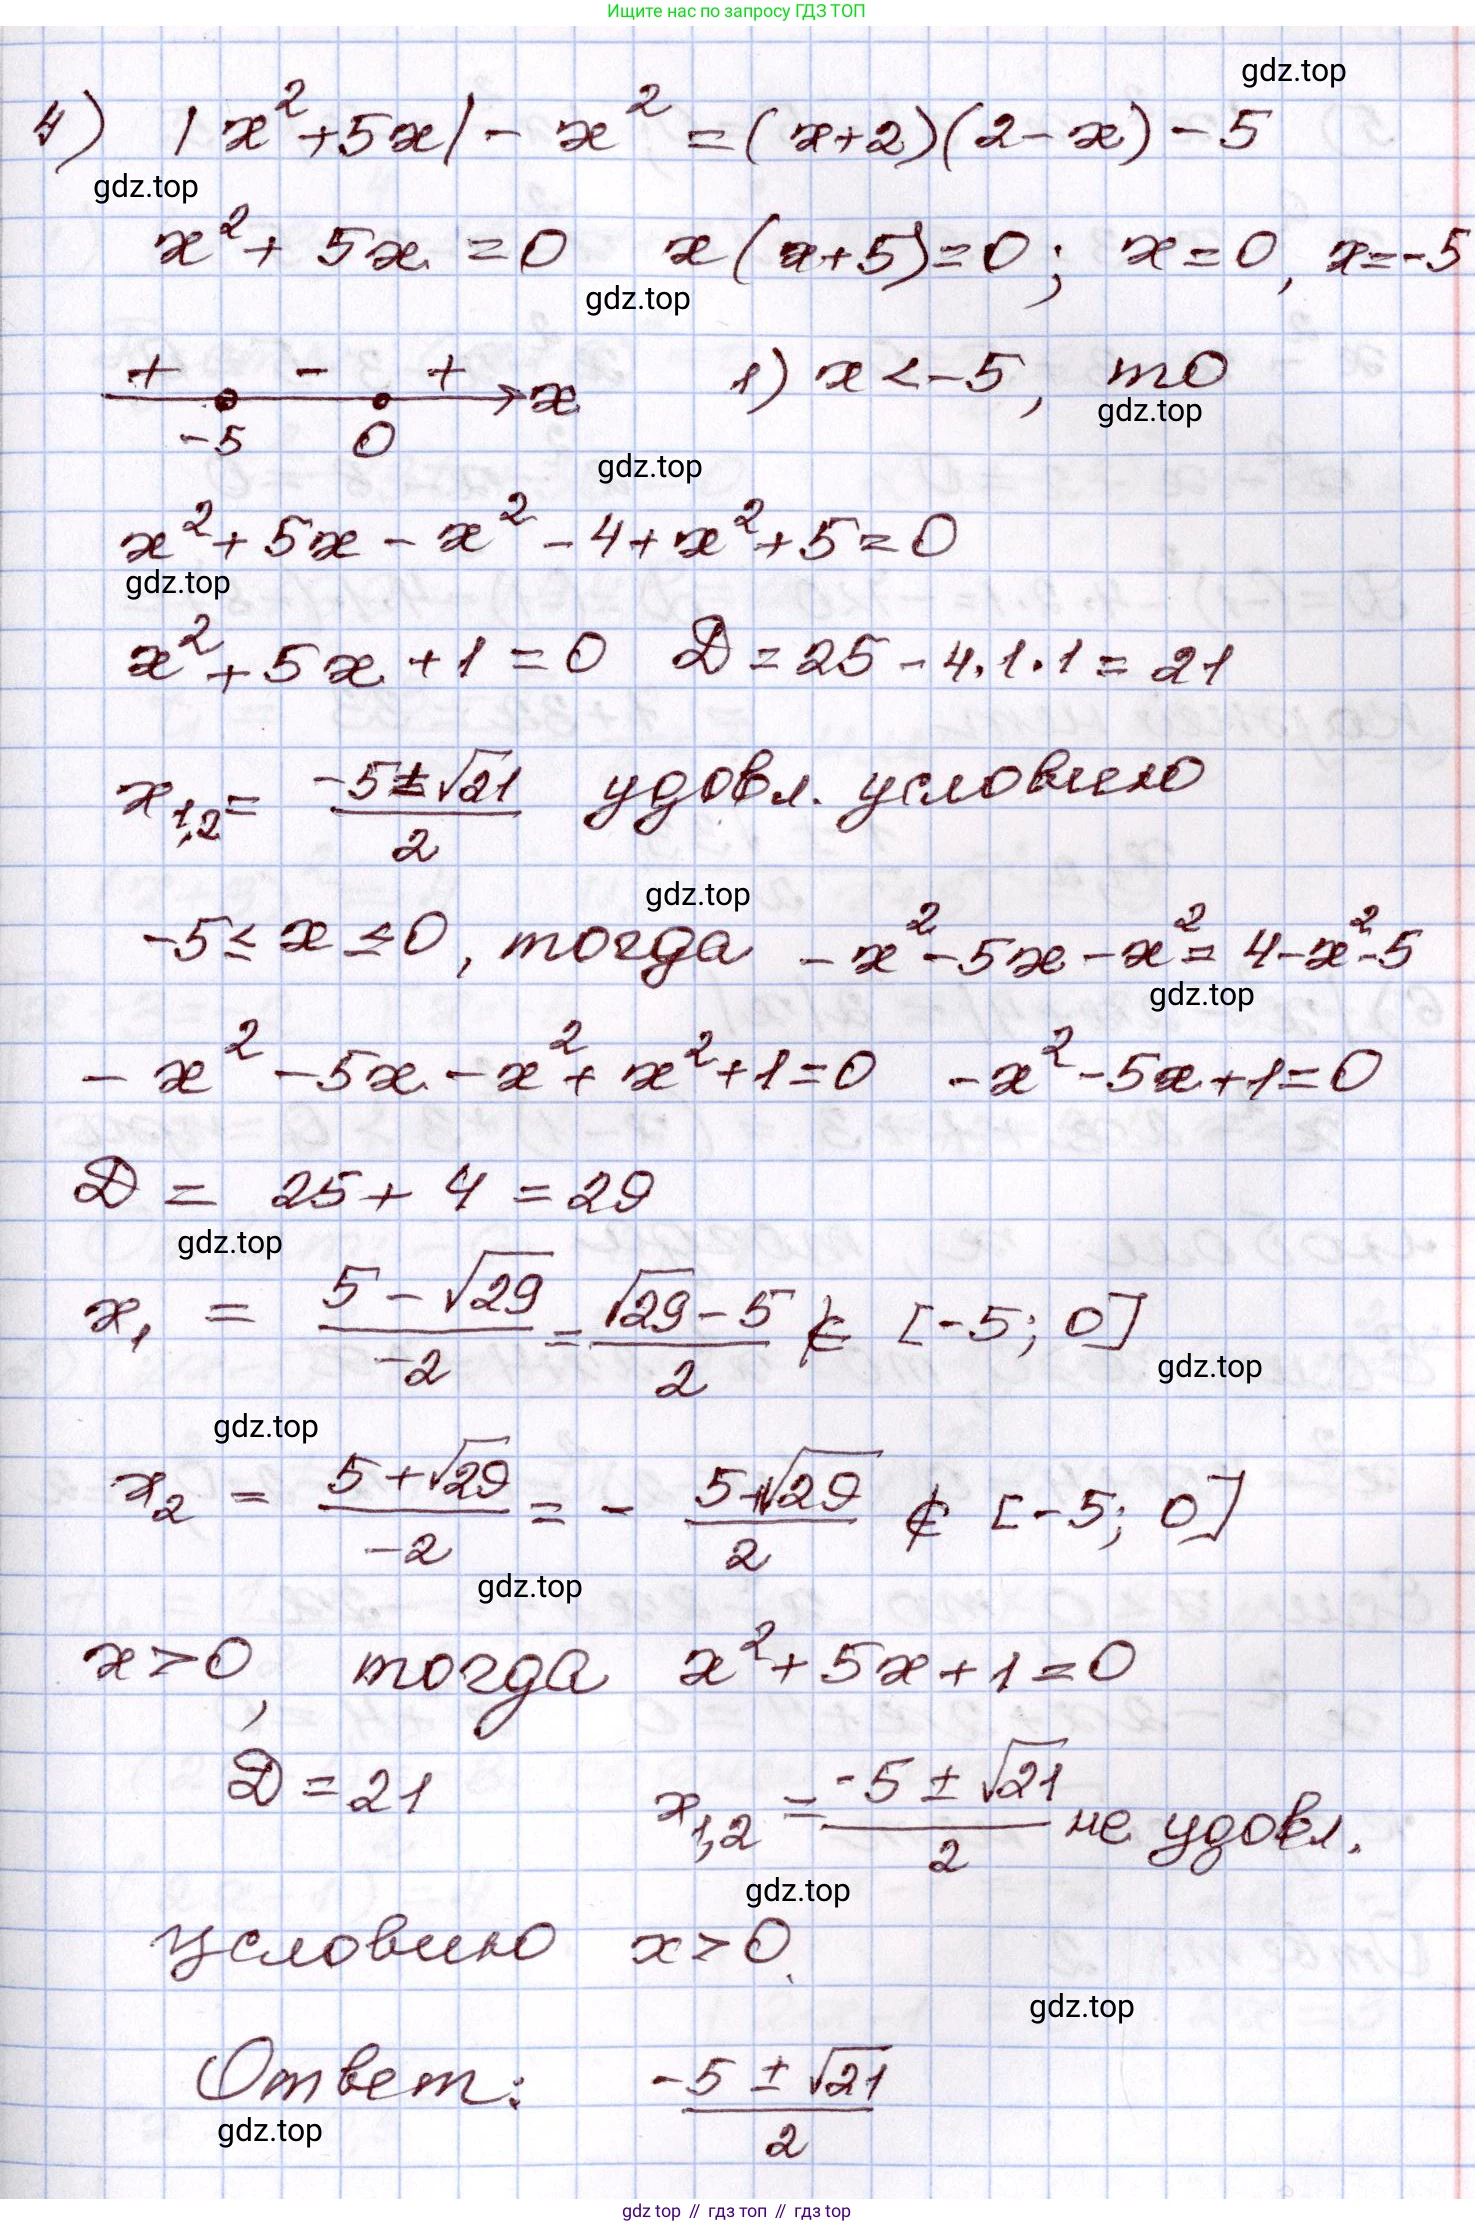 Ищите нас по запросу ГДЗ ТОП
gdz.top
4) |x² + 5x| - x² = (x+2)(2-x) - 5
gdz.top
x² + 5x = 0   x(x+5)=0; x=0, x=-5
gdz.top
+ - + x   1) x < -5, то
-5 0
gdz.top
gdz.top
x² + 5x - x² - 4 + x² + 5 = 0
gdz.top
x² + 5x + 1 = 0   D = 25 - 4·1·1 = 21
x₁,₂ = (-5 ± √21)/2 удовл. условию
gdz.top
-5 ≤ x ≤ 0, тогда -x² - 5x - x² = 4 - x² - 5
gdz.top
-x² - 5x - x² + x² + 1 = 0   -x² - 5x + 1 = 0
D = 25 + 4 = 29
gdz.top
x₁ = (5 - √29)/-2 = (√29 - 5)/2 ∉ [-5; 0]
gdz.top
gdz.top
x₂ = (5 + √29)/-2 = - (5 + √29)/2 ∉ [-5; 0]
gdz.top
x > 0, тогда x² + 5x + 1 = 0
D = 21   x₁,₂ = (-5 ± √21)/2 не удовл.
gdz.top
условию x > 0.
gdz.top
Ответ: (-5 ± √21)/2
gdz.top
gdz top // гдз топ // gdz top